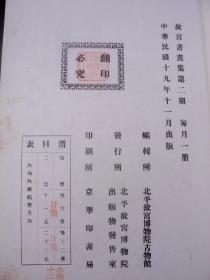 故宮書畫集第二期　每月一册
中華民國十九年十一月出版
翻印必究
編輯所　北平故宮博物院古物館
發行所　北平故宮博物院出版物發售室
印刷所　京華印書局
價目表
外埠外國郵費另加